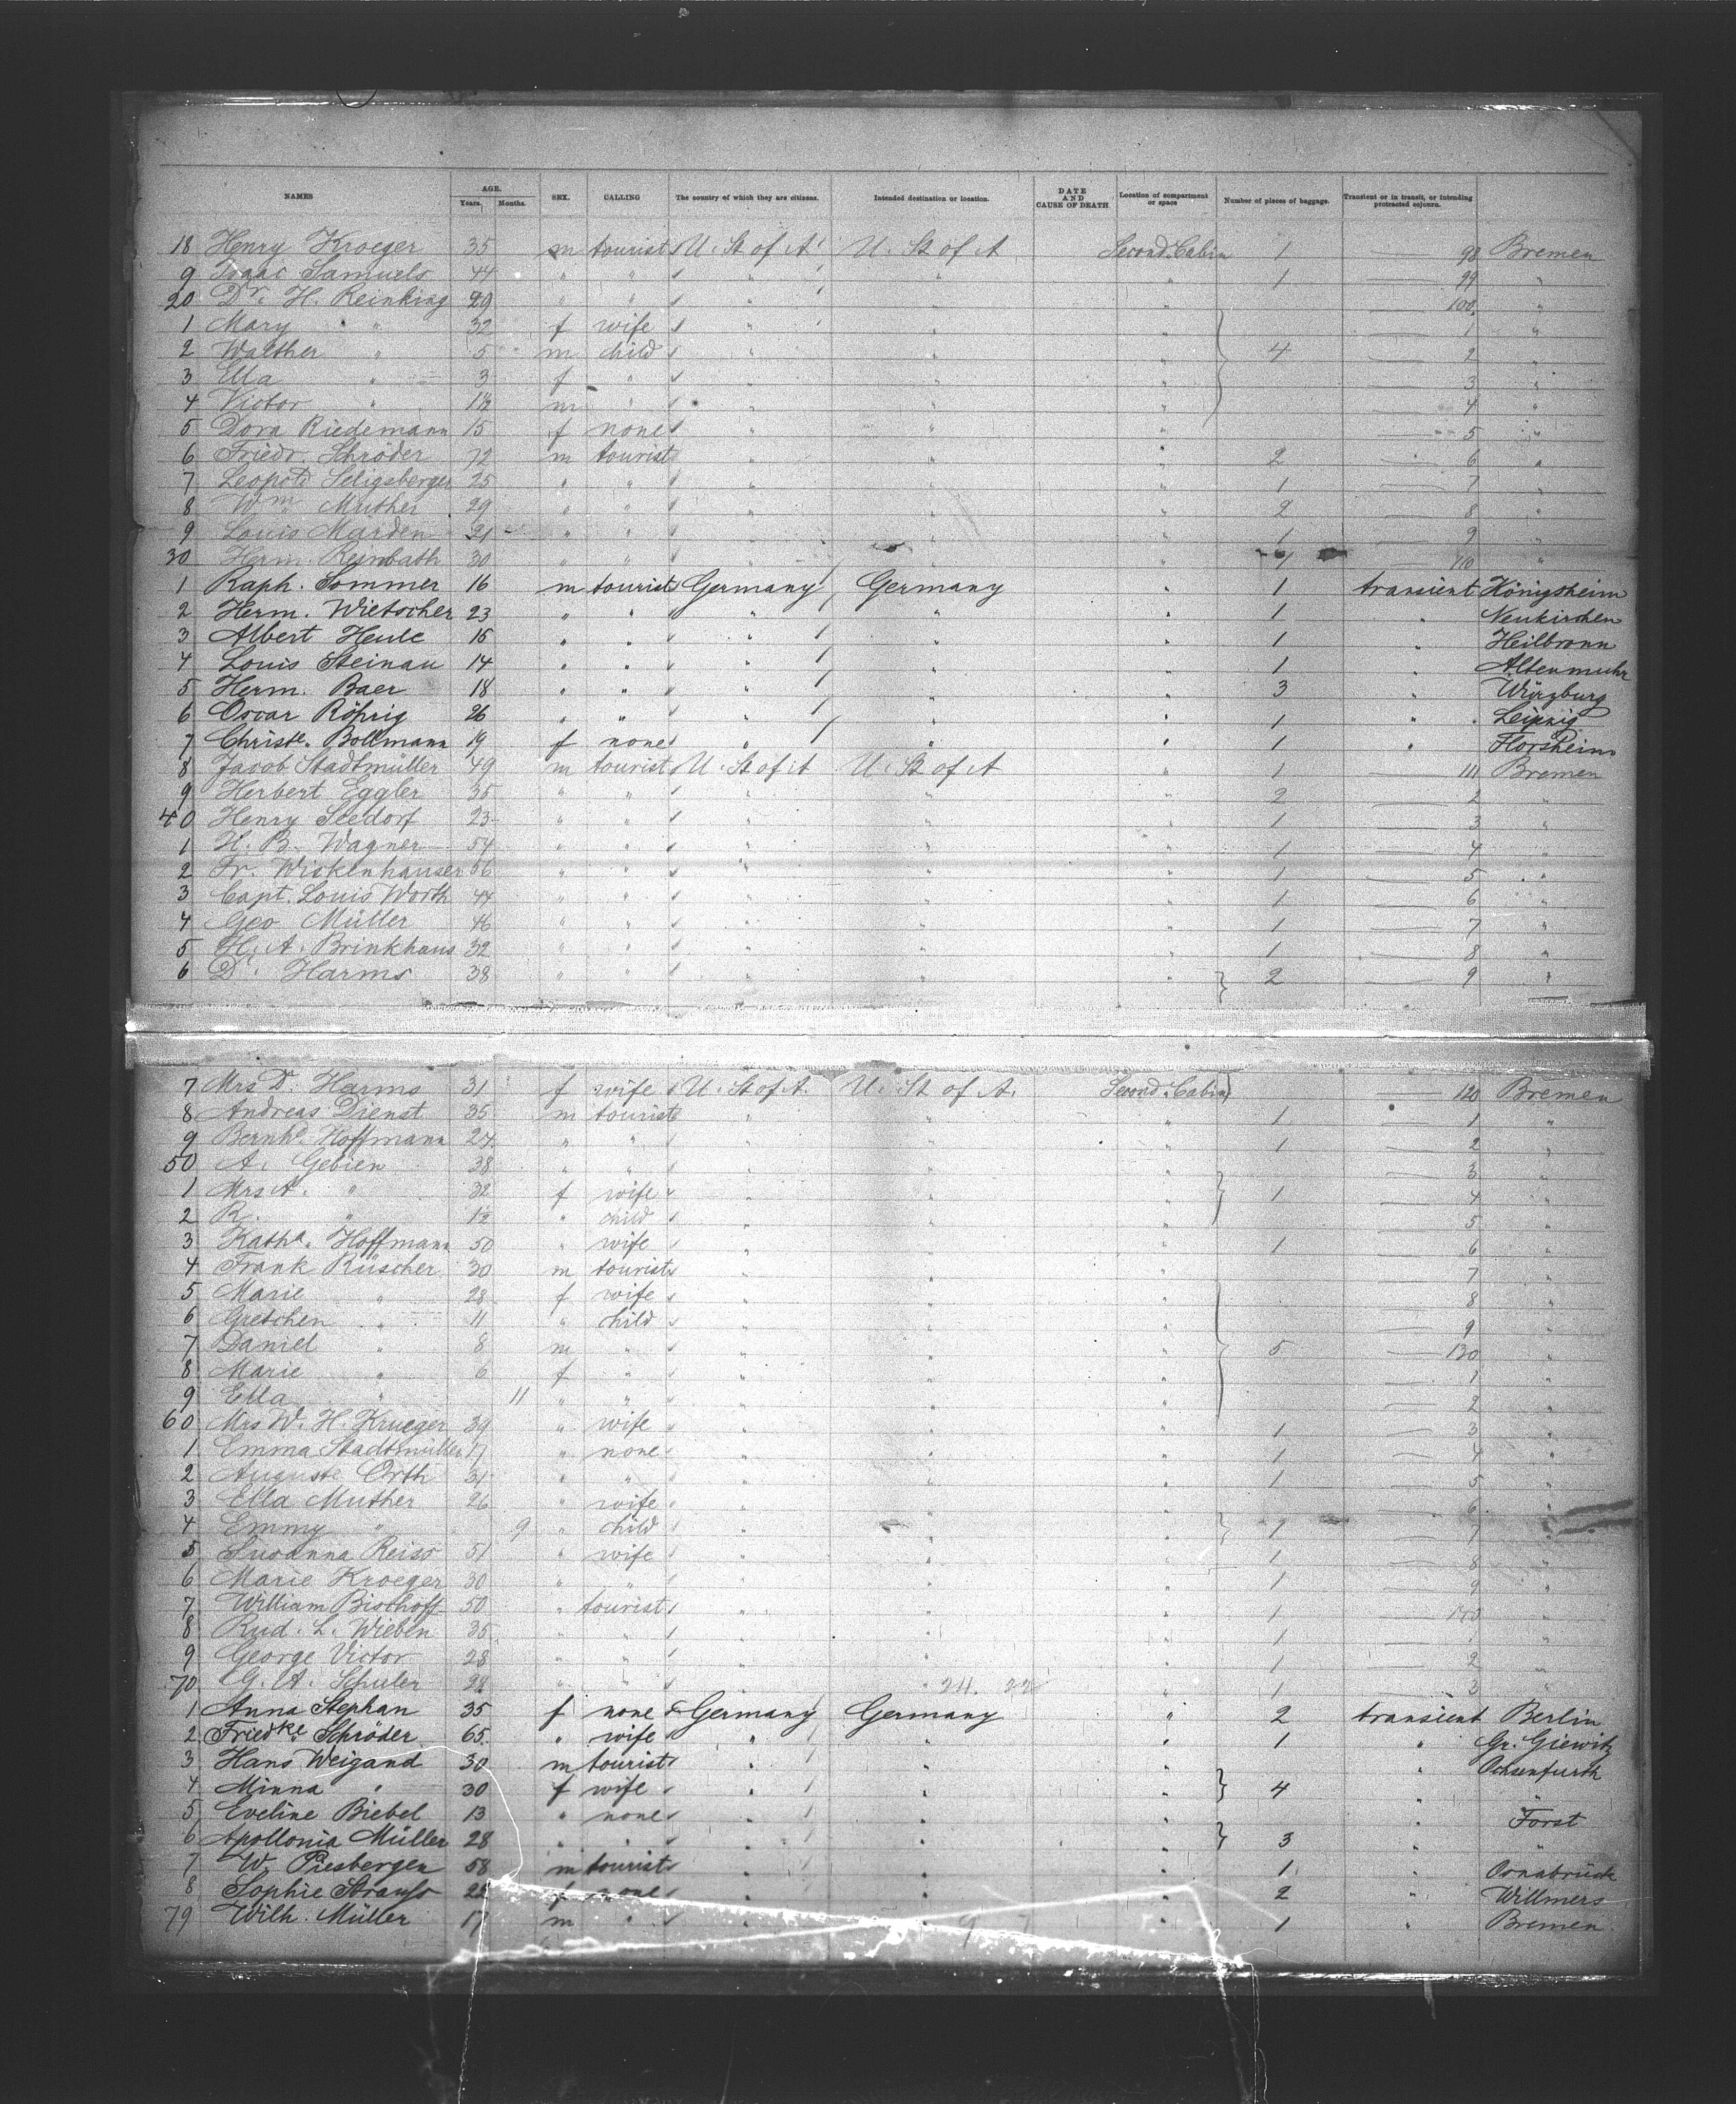 NAMES AGE. Years. Months. SEX. CALLING The country of which they are citizens. Intended destination or location. DATE AND CAUSE OF DEATH. Location of compartment or space Number of pieces of baggage. Transient or in transit, or intending protracted sojourn.
18 Henry Kroeger 35 m tourist U. St of A U. St of A Second Cabin 1 98 Bremen
9 Isaac Samuels 44 " " " " " 1 99 "
20 Dr. H. Reinking 29 " " " " " 100 "
1 Mary " 32 f wife " " " 1 "
2 Walther " 5 m child " " " 4 2 "
3 Ella " 3 f " " " " 3 "
4 Victor " 1½ m " " " " 4 "
5 Dora Riedemann 15 f none " " " 5 "
6 Friedr. Schröder 72 m tourist " " " 2 6 "
7 Leopold Seligsberger 25 " " " " " 1 7 "
8 Wm Muther 29 " " " " " 2 8 "
9 Louis Marden 21 " " " " " 1 9 "
30 Herm. 30 " " " " " 1 110 "
1 Raph. Sommer 16 m tourist Germany Germany " 1 transient Königsheim
2 Herm. Wietscher 23 " " " " " 1 " Neukirchen
3 Albert Heule 15 " " " " " 1 " Heilbronn
4 Louis Steinau 14 " " " " " 1 " Altenmuhr
5 Herm. Baer 18 " " " " " 3 " Würzburg
6 Oscar Röhrig 26 " " " " " 1 " Leipzig
7 Christe. Bollmann 19 f none " " " 1 " Florsheim
8 Jacob Stadtmüller 49 m tourist U. St of A U. St of A " 1 111 Bremen
9 Herbert Eggler 35 " " " " " 2 2 "
40 Henry Seedorf 23 " " " " " 1 3 "
1 H. B. Wagner 54 " " " " " 1 4 "
2 Fr. Wickenhauser 56 " " " " " 1 5 "
3 Capt. Louis Worth 44 " " " " " 1 6 "
4 Geo Müller 46 " " " " " 1 7 "
5 H. A. Brinkhaus 32 " " " " " 1 8 "
6 D. Harms 38 " " " " " 2 9 "
7 Mrs D. Harms 31 f wife U. St of A. U. St of A. Second Cabin 120 Bremen
8 Andreas Dienst 35 m tourist " " " 1 1 "
9 Bernhd. Hoffmann 24 " " " " " 1 2 "
50 A. Gebien 38 " " " " " 3 "
1 Mrs A. " 32 f wife " " " 1 4 "
2 R. " 1½ " child " " " 5 "
3 Katha. Hoffmann 50 " wife " " " 1 6 "
4 Frank Rüscher 30 m tourist " " " 7 "
5 Marie " 28 f wife " " " 8 "
6 Gretchen " 11 " child " " " 9 "
7 Daniel " 8 m " " " " 5 130 "
8 Marie " 6 f " " " " 1 "
9 Ella " 11 " " " " " 2 "
60 Mrs W. H. Krueger 39 " wife " " " 1 3 "
1 Emma Stadtmüller 17 " none " " " 1 4 "
2 Auguste Orth 31 " " " " " 1 5 "
3 Ella Muther 26 " wife " " " 6 "
4 Emmy " 9 " child " " " 1 7 "
5 Susanna Reiss 51 " wife " " " 1 8 "
6 Marie Kroeger 30 " " " " " 1 9 "
7 William Bischoff 50 " tourist " " " 1 140 "
8 Rud. L. Wieben 35 " " " " " 1 "
9 George Victor 28 " " " " " 1 2 "
70 G. A. Schuler 28 " " " 24. 22 " 1 3 "
1 Anna Stephan 35 f none Germany Germany " 2 transient Berlin
2 Friedke Schröder 65 " wife " " " 1 " Gr. Giewitz
3 Hans Weigand 30 m tourist " " " " Ochsenfurth
4 Minna " 30 f wife " " " 4 " "
5 Eveline Biebel 13 " none " " " " Forst
6 Apollonia Müller 28 " " " " " 3 " "
7 W. Piesbergen 58 m tourist " " " 1 " Osnabrück
8 Sophie Strauss 22 f none " " " 2 " Willmers
79 Wilh. Müller 17 m " " " " 1 " Bremen